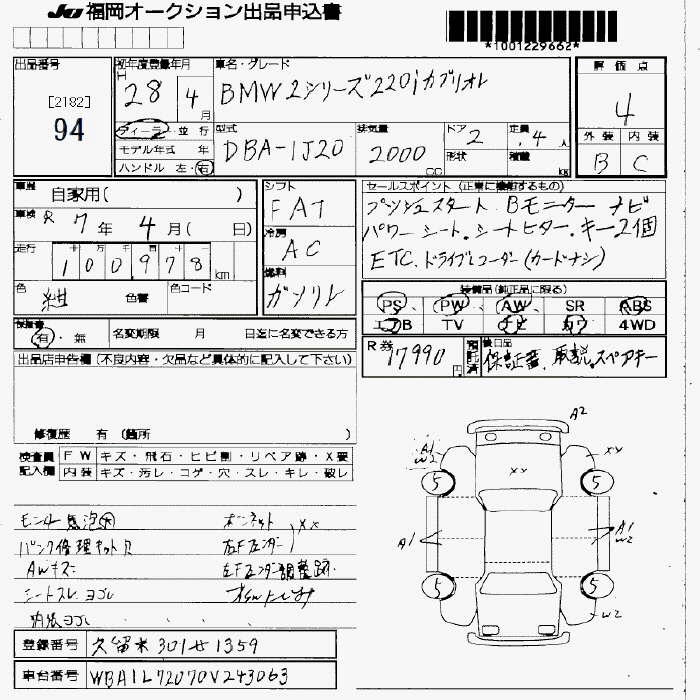 JU 福岡オークション出品申込書
*1001229662*
出品番号 初年度登録年月 車名・グレード 評価点
[2182] H 28 4月 BMW 2シリーズ 220i カブリオレ 4
94 ディーラ・並行 型式 排気量 ドア 2 定員 4人 外装 内装
モデル年式 年 DBA-1J20 2000cc 形状 積載 kg B C
ハンドル 左・右
車歴 自家用( ) シフト FAT セールスポイント (正常に機能するもの)
車検 R 7年 4月( 日) 冷房 AC プッシュスタート Bモニター ナビ
走行 100,978km パワーシート.シートヒター.キー2個
色 紺 色替 色コード 燃料 ガソリレ ETC.ドライブレコーダー(カードナシ)
装備品(純正品に限る)
PS、PW、AW、SR ABS
エアB TV ナビ カワ 4WD
保証書 有・無 名変期限 月 日迄に名変できる方
R券 17990円 預託済 後日品 保証書、取説、スペアキー
出品店申告欄(不良内容・欠品など具体的に記入して下さい)
修復歴 有 (箇所 )
検査員記入欄 FW キズ・飛石・ヒビ割・リペア跡・X要
内装 キズ・汚レ・コゲ・穴・スレ・キレ・破レ
モニター気泡大 ボンネット XX
パンク修理キット欠 左Fフェンダー
AWキズ 左Fフェンダー調整跡
シートスレ ヨゴレ
内張ヨゴレ
A2
A1 W2 XX XX
5 5
A1 A1 W2
5 5
W2
登録番号 久留米 301 せ 1359
車台番号 WBA1L72070V243063